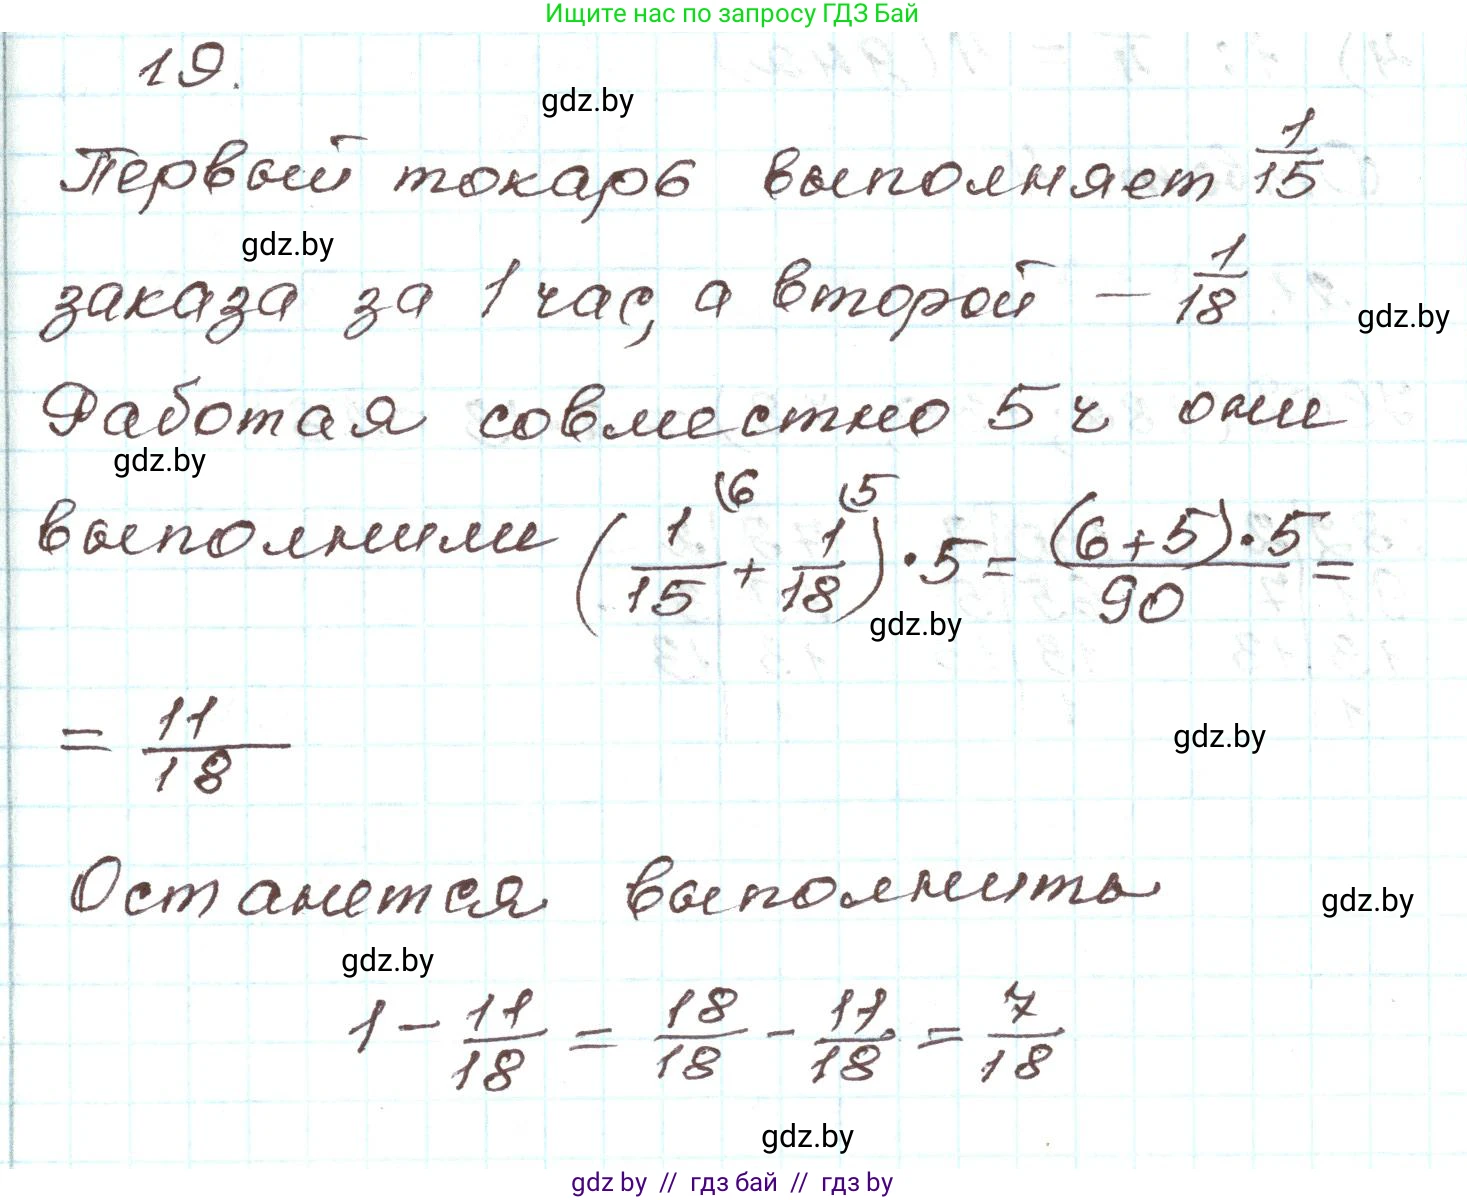 Ищите нас по запросу ГДЗ Бай
19.
gdz.by
Первый токарь выполняет 1/15
gdz.by
заказа за 1 час, а второй – 1/18
gdz.by
Работая совместно 5 ч они
gdz.by
выполнили (1/15 (6 + 1/18 (5) · 5 = (6+5)·5/90 =
gdz.by
= 11/18
gdz.by
Останется выполнить
gdz.by
gdz.by
1 – 11/18 = 18/18 – 11/18 = 7/18
gdz.by
gdz by // гдз бай // гдз by